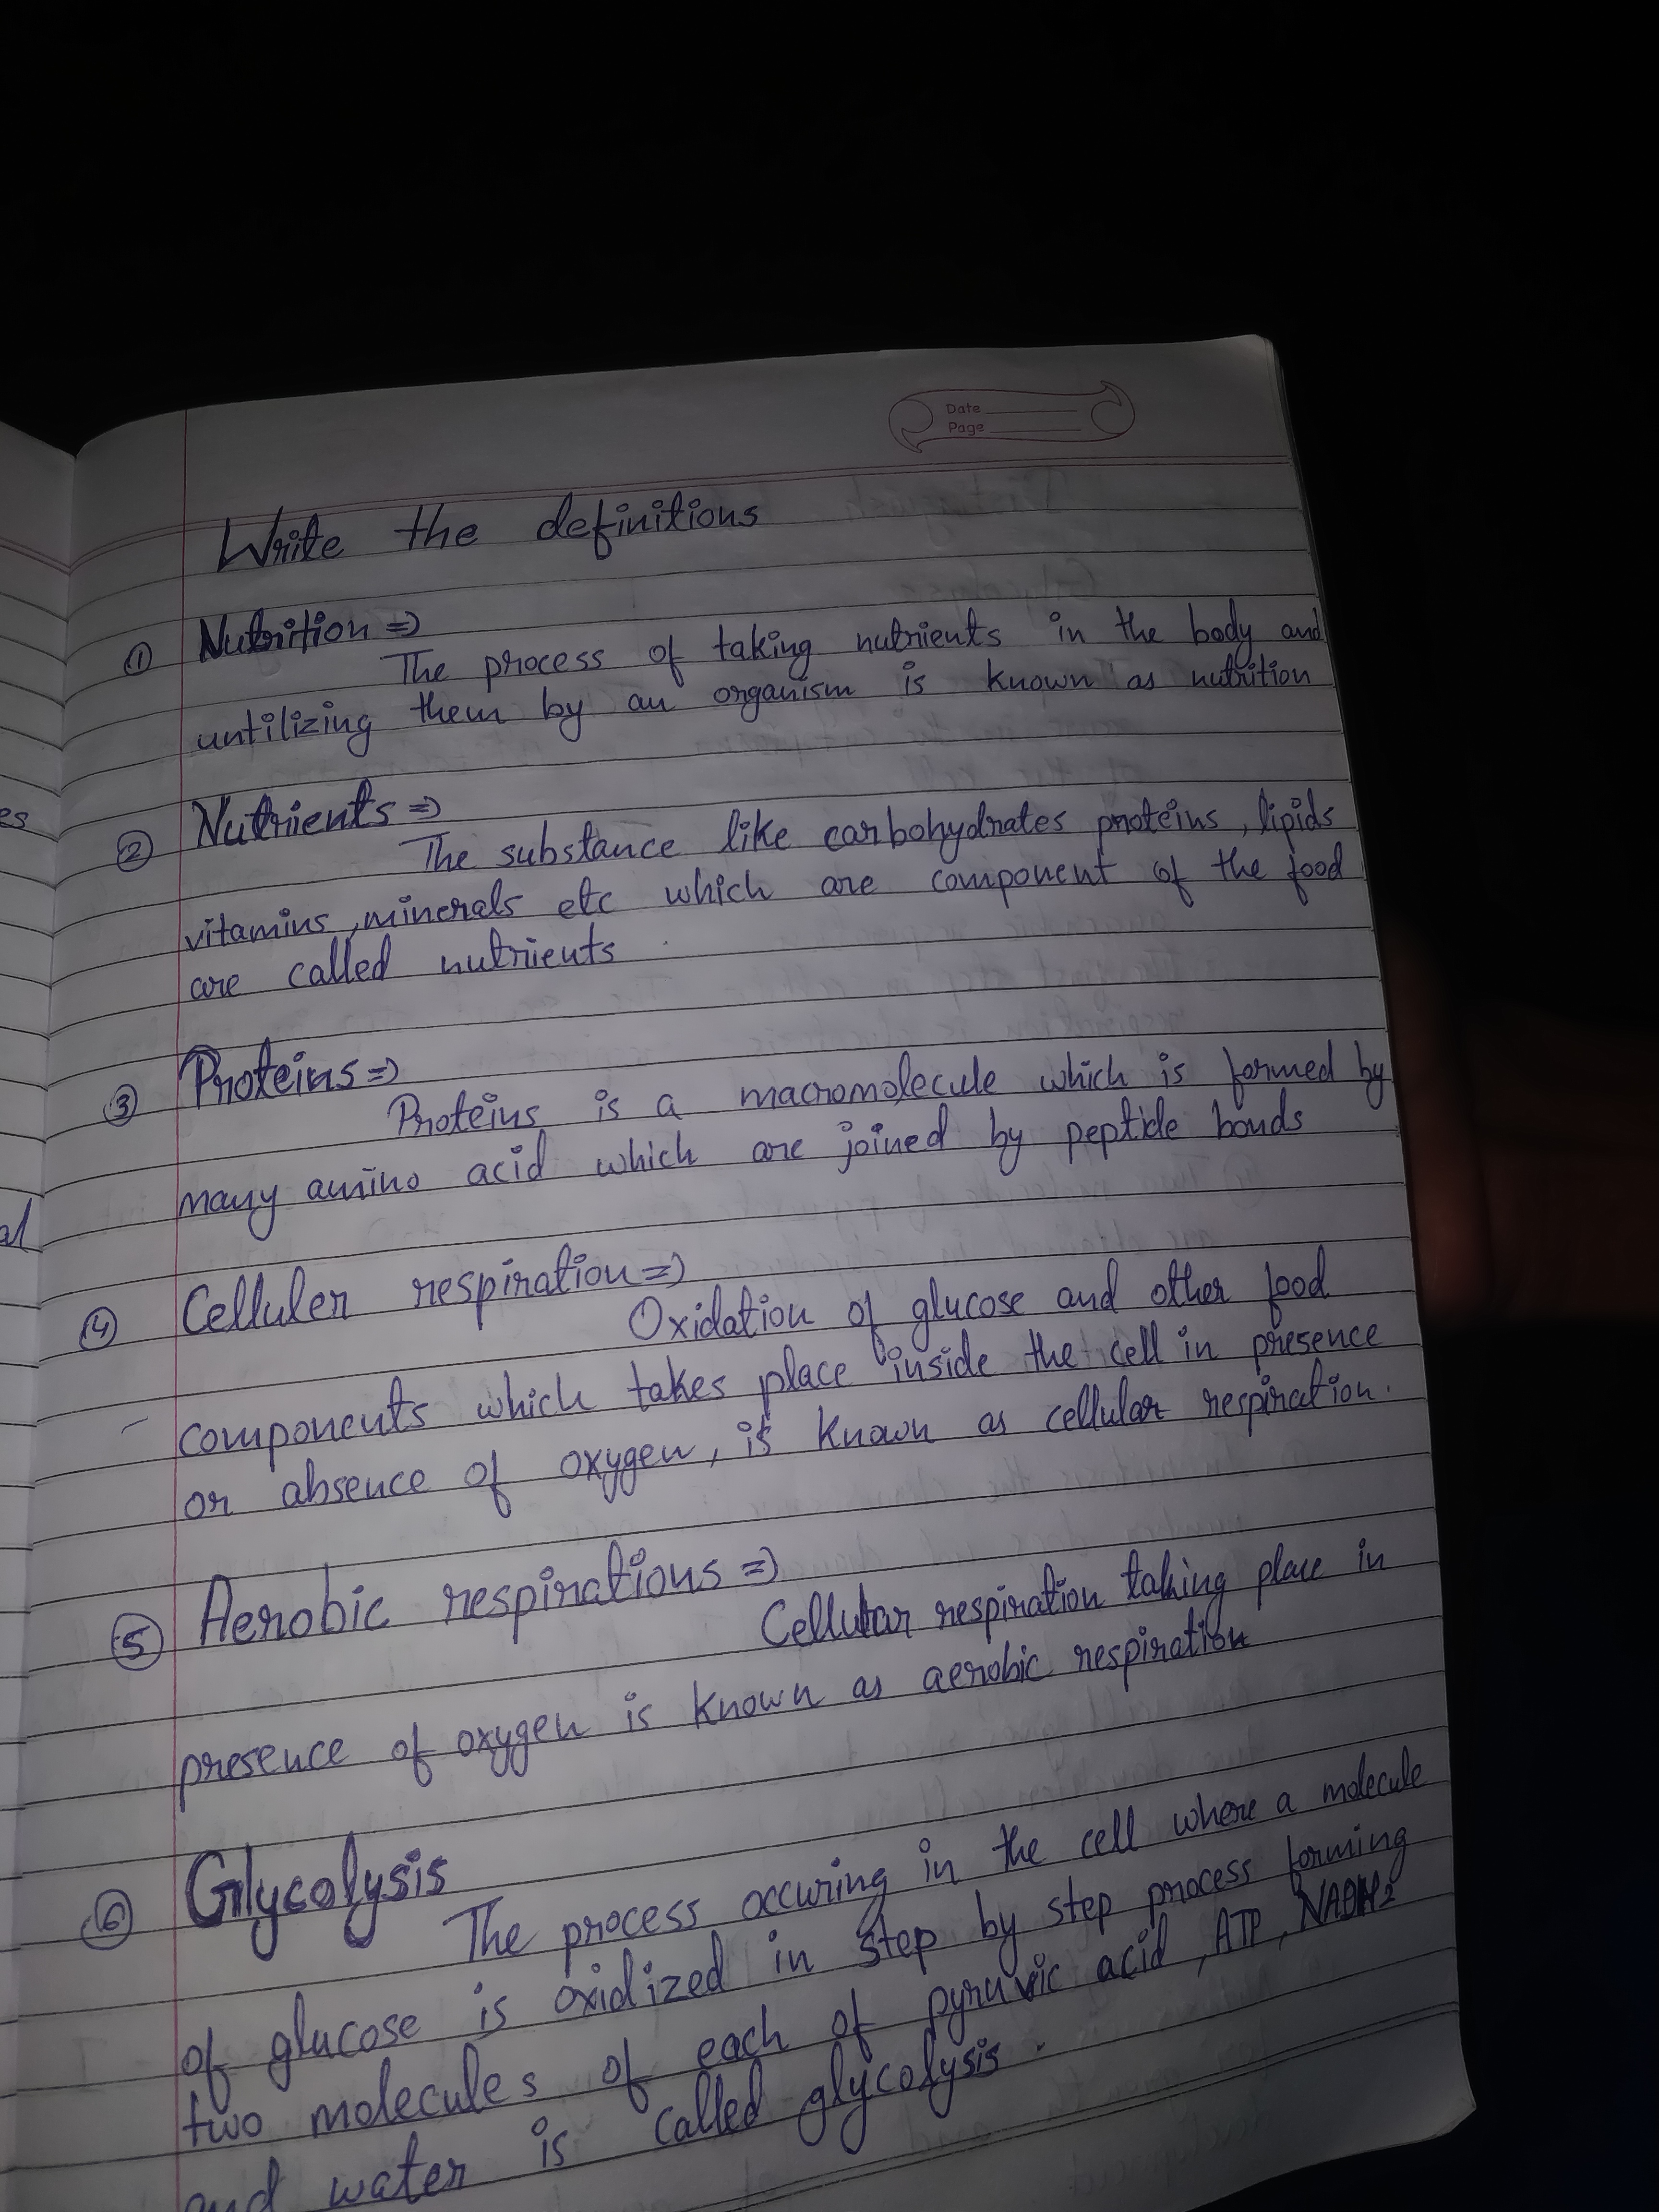 Date
Page
Write the definitions
① Nutrition =>
The process of taking nutrients in the body and
untilizing them by an organism is known as nutrition
② Nutrients =>
The substance like carbohydrates proteins, lipids
vitamins, minerals etc which are component of the food
are called nutrients
③ Proteins =>
Proteins is a macromolecule which is formed by
many amino acid which are joined by peptide bonds
④ Celluler respiration =>
Oxidation of glucose and other food
components which takes place inside the cell in presence
or absence of oxygen, is known as cellular respiration.
⑤ Aerobic respirations =>
Cellular respiration taking place in
presence of oxygen is known as aerobic respiration
⑥ Glycolysis
The process occuring in the cell where a molecule
of glucose is oxidized in step by step process forming
two molecules of each of pyruvic acid, ATP, NADH2
and water is called glycolysis.
es
al